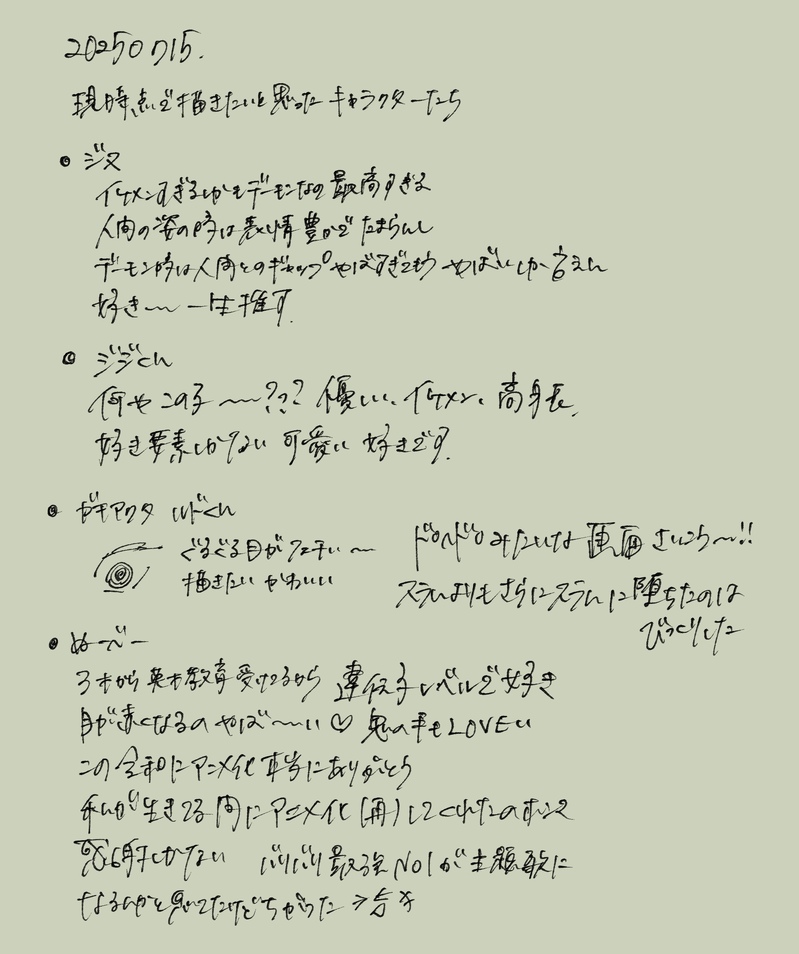 20250715.
現時点で描きたいと思ったキャラクターたち
• ジヌ
イケメンすぎるしかもデーモンなの最高すぎる
人間の姿の時は表情豊かでたまらんし
デーモン時は人間とのギャップやばすぎてもうやばいしか言えん
好き〜〜一生推す
• ジジくん
何やこの子〜〜??? 優しい、イケメン、高身長、
好き要素しかない 可愛い 好きです。
• ガチアクタ ルドくん
ぐるぐる目がフェチい〜
描きたい かわいい
ドロヘドロみたいな画面さいこう〜!!
スラムよりもさらにスラムに堕ちたのは
びっくりした
• ぬ〜べ〜
3才から英才教育受けてるから 遺伝子レベルで好き
目が赤くなるのやば〜〜い♡ 鬼の手もLOVEい
この令和にアニメ化本当にありがとう
私が生きてる間にアニメ化(再)してくれたのホンマ
感謝しかない バリバリ最強NO1が主題歌に
なるんかと思ってたけどちがった